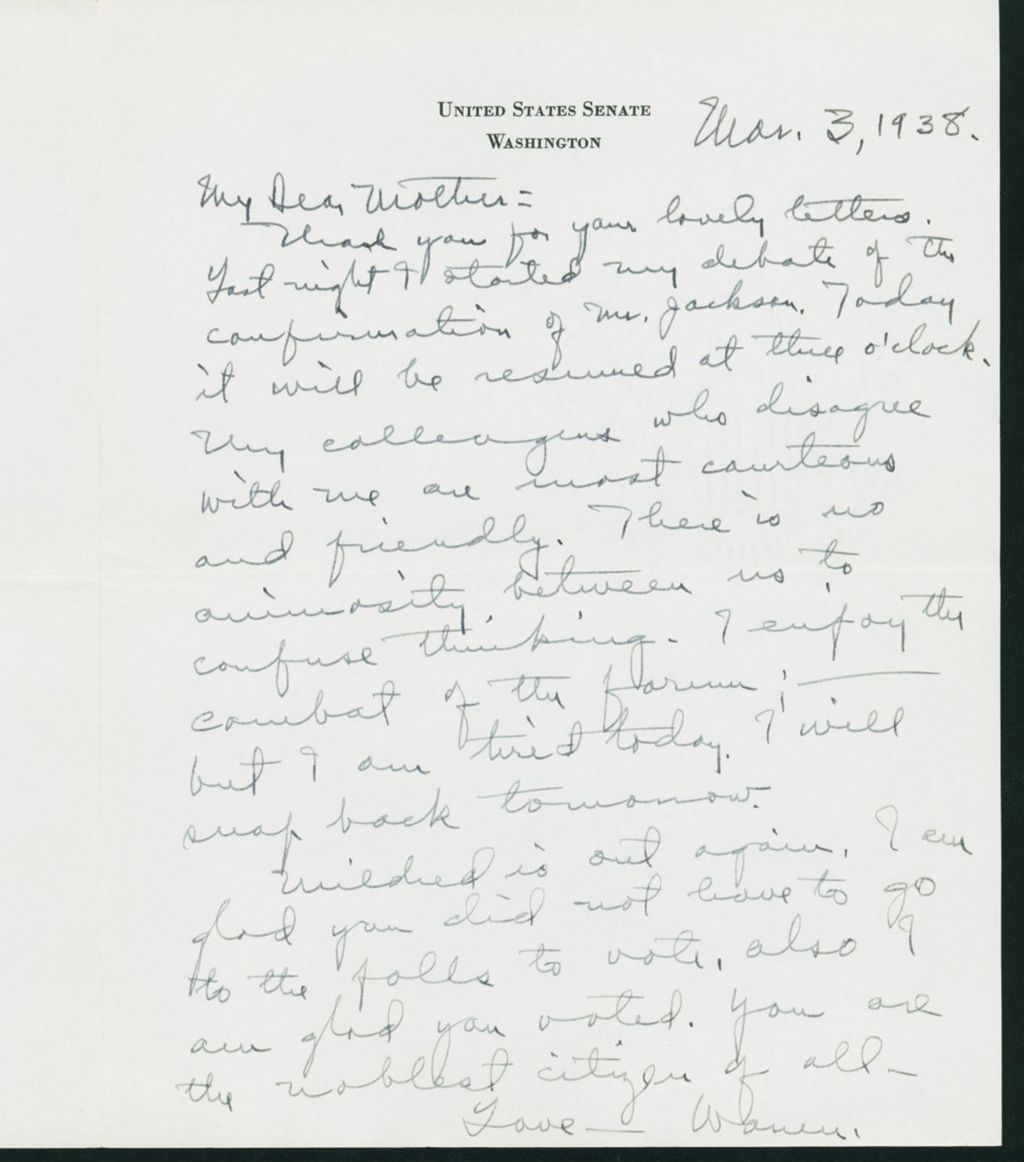 UNITED STATES SENATE
WASHINGTON
Mar. 3, 1938.
My Dear Mother =
Thank you for your lovely letters.
Last night I started my debate of the
confirmation of Mr. Jackson. Today
it will be resumed at three o'clock.
My colleagues who disagree
with me are most courteous
and friendly. There is no
animosity between us to
confuse thinking. I enjoy the
combat of the forum; —
but I am tired today. I will
snap back tomorrow.
Mildred is out again. I am
glad you did not have to go
to the polls to vote, also I
am glad you voted. You are
the noblest citizen of all —
Love — Warren.